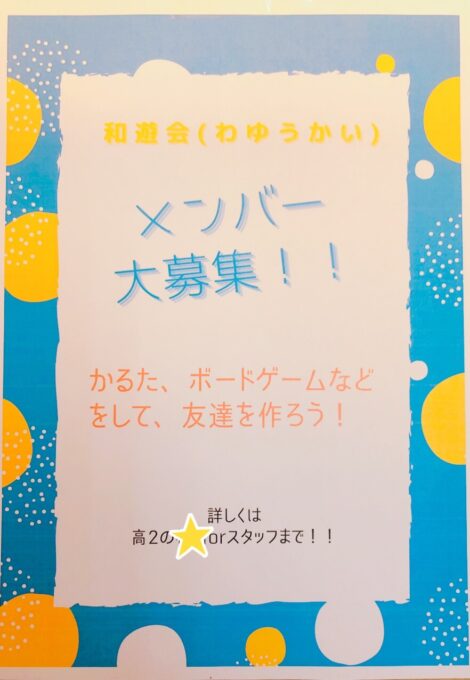 和遊会(わゆうかい)
メンバー
大募集！！
かるた、ボードゲームなど
をして、友達を作ろう！
詳しくは
高2の orスタッフまで！！